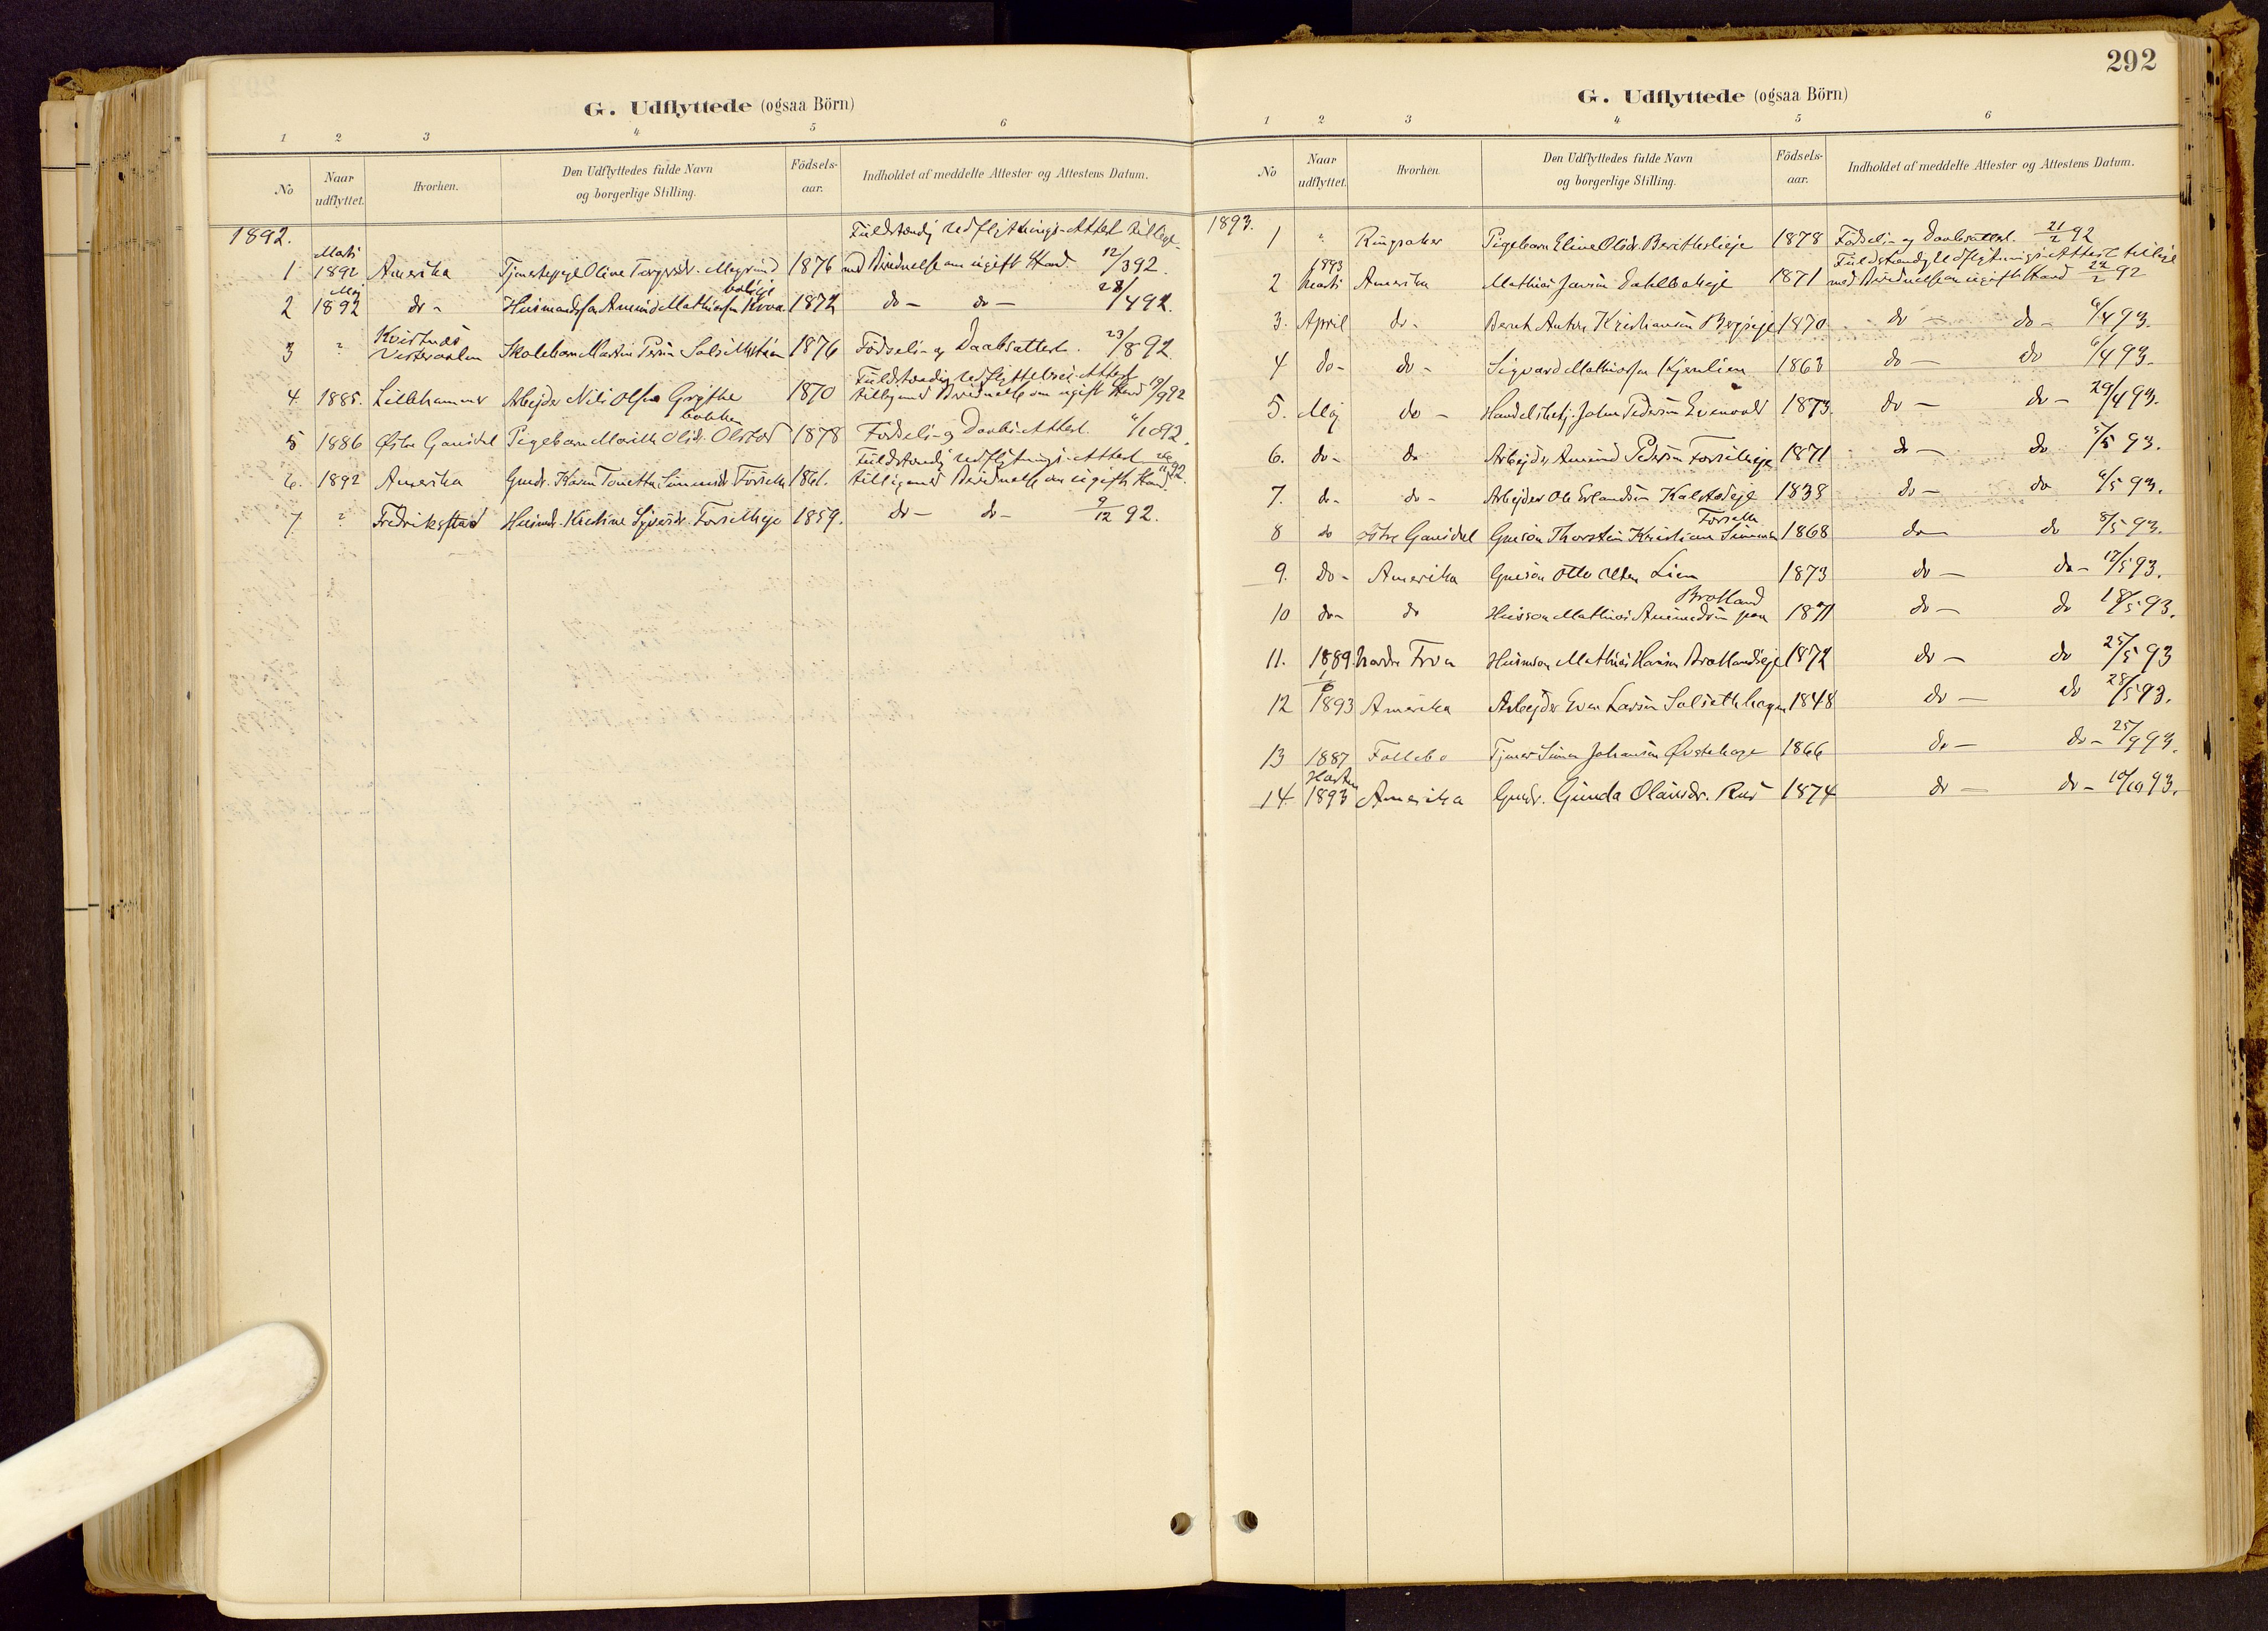 G. Udflyttede (ogsaa Börn)
1 2 3 4 5 6
No Naar udflyttet. Hvorhen. Den Udflyttedes fulde Navn og borgerlige Stilling. Födsels-aar. Indholdet af meddelte Attester og Attestens Datum.
1892.
Fuldstændig Udflytnings-Attest tillige-
Marts
1 1892 Amerika Tjenestepige Oline Torgersdr. 1876 med Bevidnelse om ugift Stand. 12/3 92.
Maj
2 1892 do - Husmandssøn Amund Mathiassen 1872 do - do - 28/4 92.
Kvitnæs
3 " Vesteraalen Skolebarn Martin 1876 Födsels- og Daabsattest. 23/8 92.
Fuldstændig Udflyttelses-Attest
4. 1885. Lillehammer Arbejder Nils Olsen Grytte 1870 tilligemed Bevidnelse om ugift Stand 19/9 92
bakken
5 1886 Østre Gausdal Pigebarn Marith Olsdr. Olstad 1878 Födsels- og Daabs-Attest. 92.
Fuldstændig Udflytnings-Attest
6. 1892 Amerika Gmdr. Karen Tonetta Simensdr. Forseth 1861. tilligemed Bevidnelse om ugift Stand. 92.
7 " Fredriksstad Husmdr. Kristine Syversdr. Forsetheje 1859. do - do - 9/12 92.
292
G. Udflyttede (ogsaa Börn)
1 2 3 4 5 6
No Naar udflyttet. Hvorhen. Den Udflyttedes fulde Navn og borgerlige Stilling. Födsels-aar. Indholdet af meddelte Attester og Attestens Datum.
1893.
1 " Ringsaker Pigebarn Eline Olsdr. 1878 Födsels- og Daabsattest. 21/2 92
1893 Fuldstændig Udflytnings-Attest tillige
2 Marts Amerika Mathias Dahlbakeje 1871 med Bevidnelse om ugift Stand 22/2 92
3. April do - Bernt Anton Kristiansen Bergseje 1870 do - do - 6/4 93.
4 do - do - Sigvard Mathiassen Kjernlien 1863 do - do 6/4 93.
5. Maj do - Handelsbetj. Johan Pedersen Evenvold 1873. do - do - 29/4 93.
6. do - do Arbejder Amund Pedersen Forsetheje 1871 do - do 5/5 93.
7. do - do - Arbejder Ole Erlandsen Kalstadeje 1838 do - do 6/5 93.
Forseth
8 do Østre Gausdal Gmsøn Thorstein Kristian Simensen 1868 do - do 8/5 93.
9. do - Amerika Gmsøn Otto Olsen Lien 1873 do - do - 17/5 93.
Brotland
10 do - do Husson Mathias Amundsen 1871 do - do 18/5 93.
11. 1889. Nordre Fron Husmson Mathias Hansen Brotlandseje 1872 do - do 25/5 93
12 1893 Amerika Arbejder Even Larsen Solsethhagen 1848 do - do 28/5 93.
13 1887 Follebo Tjener Simen Johansen 1866 do - do - 25/9 93.
Høsten
14. 1893 Amerika Gmdr. Gunda Olausdr. Rus 1874 do - do - 10/10 93.